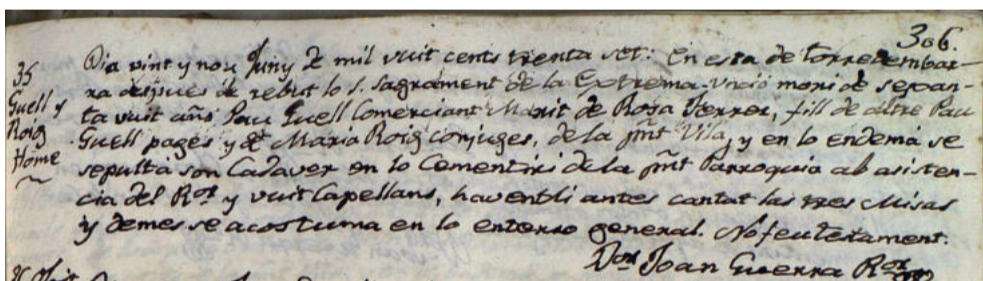 306.
35
Guell y
Roig
Home
Dia vint y nou Juny de mil vuit cents trenta set: En esta de Torredembar-
ra despues de rebut lo s. Sagrament de la Extrema-Unció morí de sexan-
ta vuit añs Pau Guell Comerciant Marit de Rosa Ferrer, fill de altre Pau
Guell pagès y de Maria Roig conjuges, de la pnt Vila, y en lo endemá se
sepultá son Cadaver en lo Cementiri de la pnt Parroquia ab asisten-
cia del Ror y vuit Capellans, haventli antes cantat las tres Misas
y demes se acostuma en lo enterro general. No feu testament.
Dor Joan Guerra Ror